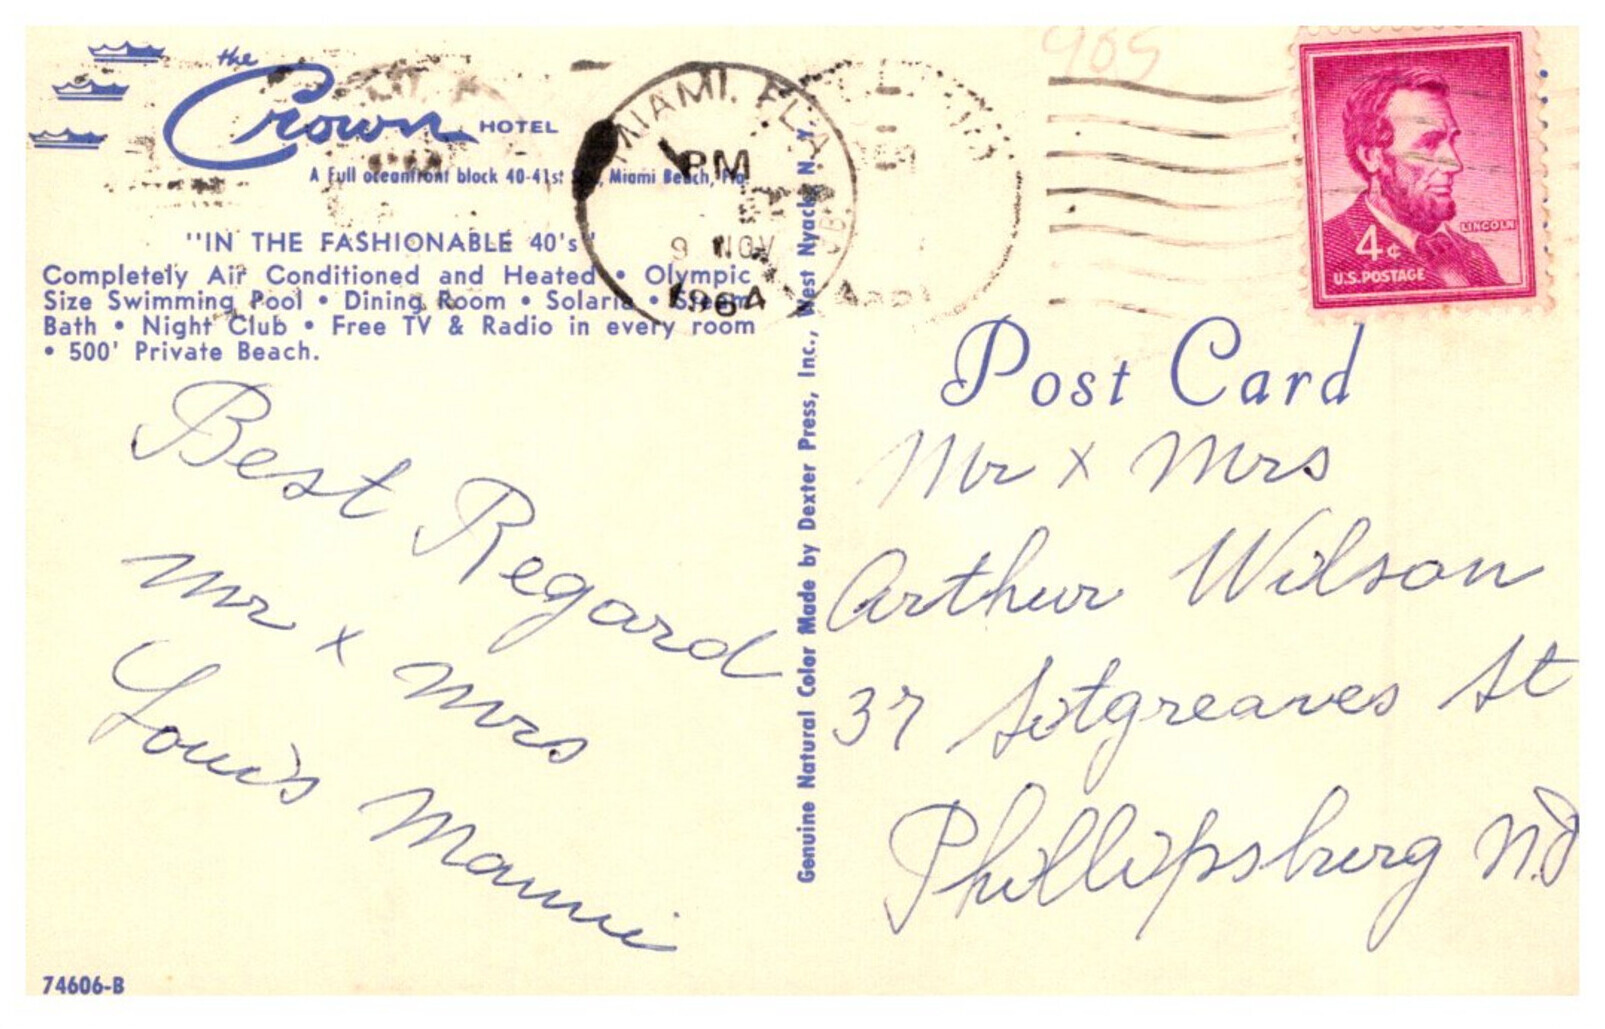 the
Crown HOTEL
A full oceanfront block 40-41st Sts., Miami Beach, Fla.
"IN THE FASHIONABLE 40's"
Completely Air Conditioned and Heated • Olympic
Size Swimming Pool • Dining Room • Solaria • Steam
Bath • Night Club • Free TV & Radio in every room
• 500' Private Beach.
Best Regard
Mr x Mrs
Louis Manni
74606-B
Genuine Natural Color Made by Dexter Press, Inc., West Nyack, N. Y.
MIAMI, FLA.
PM
9 NOV
1964
905
LINCOLN
4¢
U.S. POSTAGE
Post Card
Mr x Mrs
Arthur Wilson
37 Sitgreaves St
Phillipsburg N.J